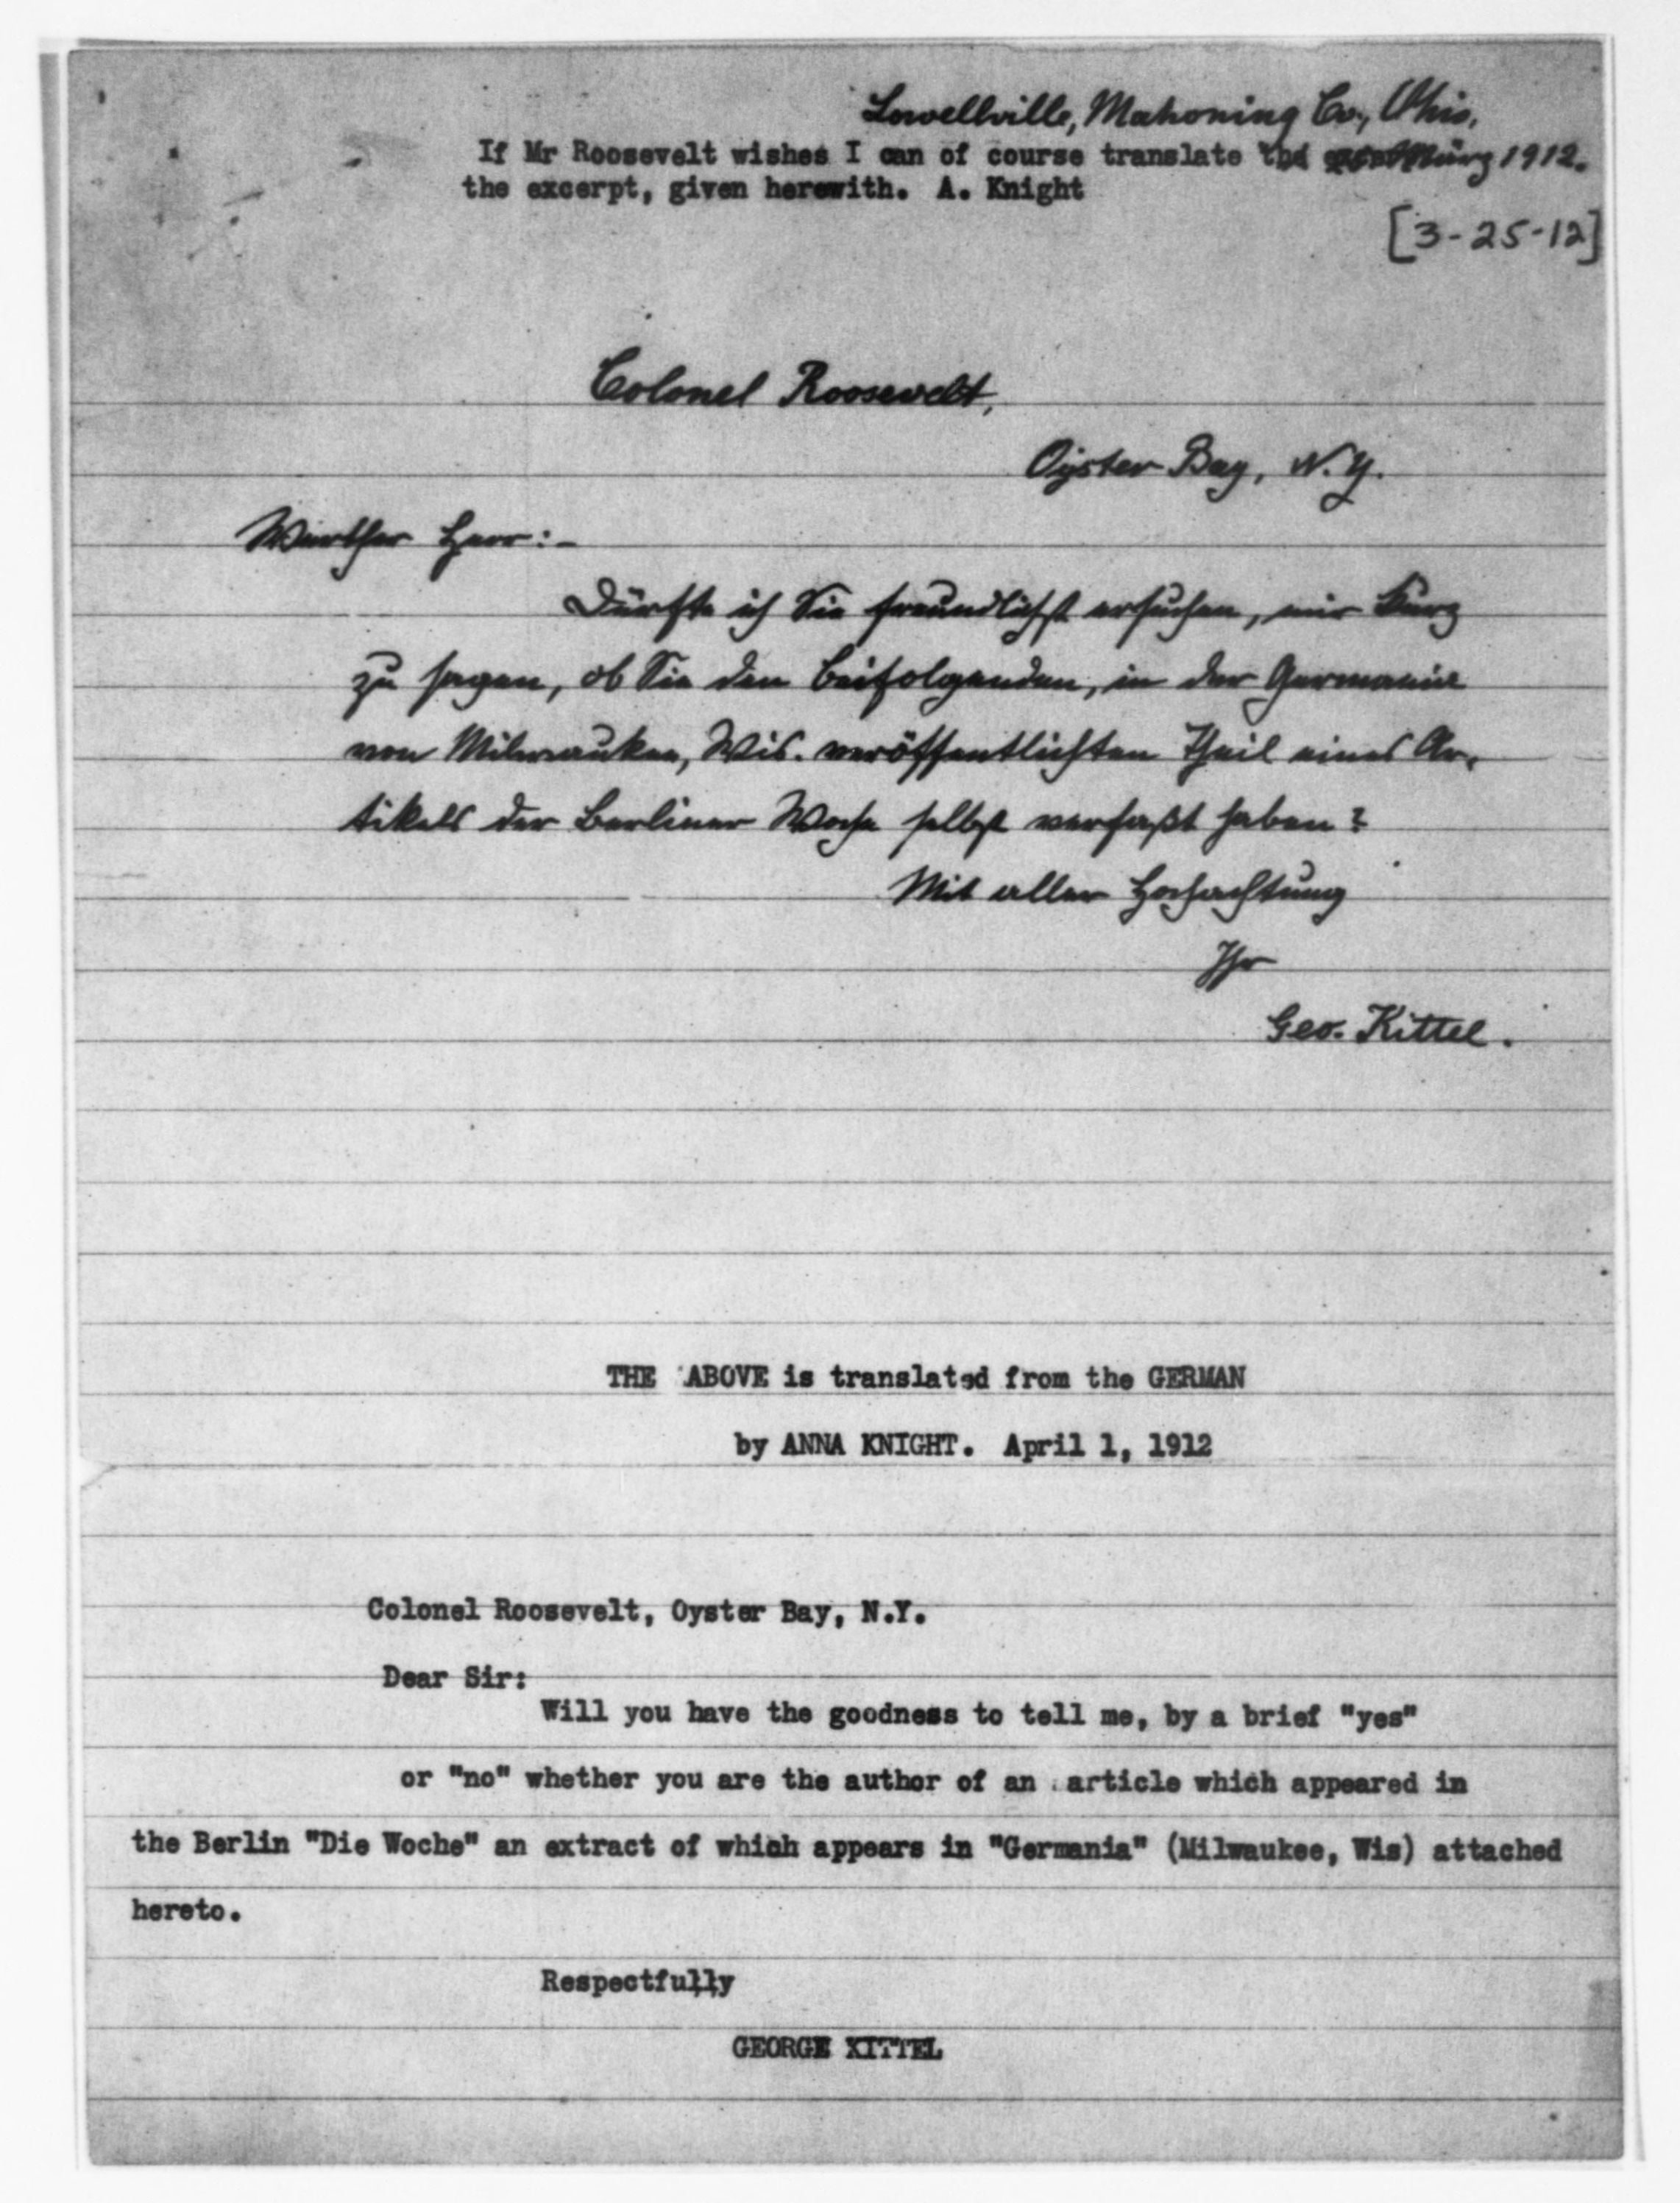 Lowellville, Mahoning Co., Ohio,
If Mr Roosevelt wishes I can of course translate the März 1912.
the excerpt, given herewith. A. Knight
[3-25-12]
Colonel Roosevelt,
Oyster Bay, N.Y.
Werther Herr:-
Dürfte ich Sie freundlichst ersuchen, mir kurz
zu sagen, ob Sie den beifolgenden, in der Germania
von Milwaukee, Wis. veröffentlichten Theil eines Ar-
tikels der Berliner Woche selbst verfaßt haben?
Mit aller Hochachtung
Ihr
Geo. Kittel.
THE ABOVE is translated from the GERMAN
by ANNA KNIGHT. April 1, 1912
Colonel Roosevelt, Oyster Bay, N.Y.
Dear Sir:
Will you have the goodness to tell me, by a brief "yes"
or "no" whether you are the author of an article which appeared in
the Berlin "Die Woche" an extract of which appears in "Germania" (Milwaukee, Wis) attached
hereto.
Respectfully
GEORGE KITTEL